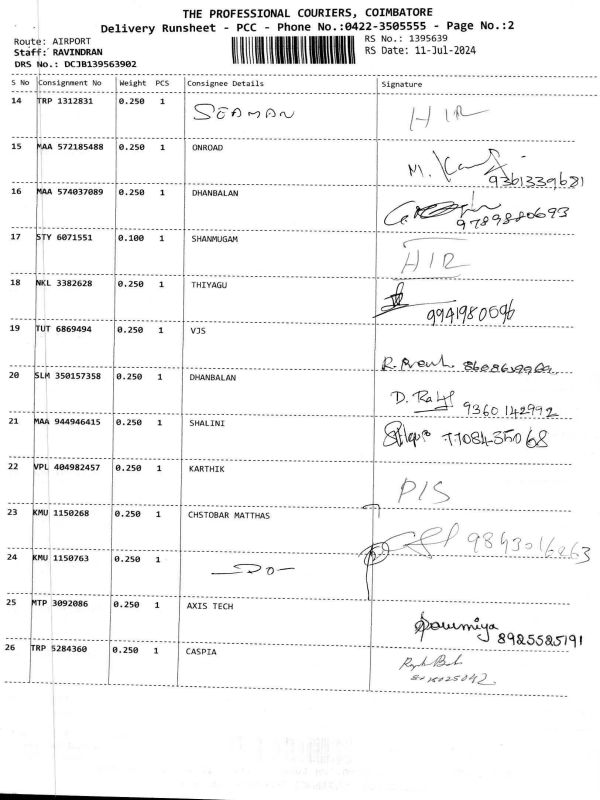 THE PROFESSIONAL COURIERS, COIMBATORE
Delivery Runsheet - PCC - Phone No.:0422-3505555 - Page No.:2
Route: AIRPORT
Staff: RAVINDRAN
DRS No.: DCJB139563902
RS No.: 1395639
RS Date: 11-Jul-2024
S No Consignment No Weight PCS Consignee Details Signature
14 TRP 1312831 0.250 1 SEAMAN HIR
15 MAA 572185488 0.250 1 ONROAD M. 9361339681
16 MAA 574037089 0.250 1 DHANBALAN 9789880693
17 STY 6071551 0.100 1 SHANMUGAM HIR
18 NKL 3382628 0.250 1 THIYAGU 9941980096
19 TUT 6869494 0.250 1 VJS
20 SLM 350157358 0.250 1 DHANBALAN D. 9360142992
21 MAA 944946415 0.250 1 SHALINI 7708435068
22 VPL 404982457 0.250 1 KARTHIK P/S
23 KMU 1150268 0.250 1 CHSTOBAR MATTHAS 9843016263
24 KMU 1150763 0.250 1 -Do-
25 MTP 3092086 0.250 1 AXIS TECH Sowmiya 8925525191
26 TRP 5284360 0.250 1 CASPIA